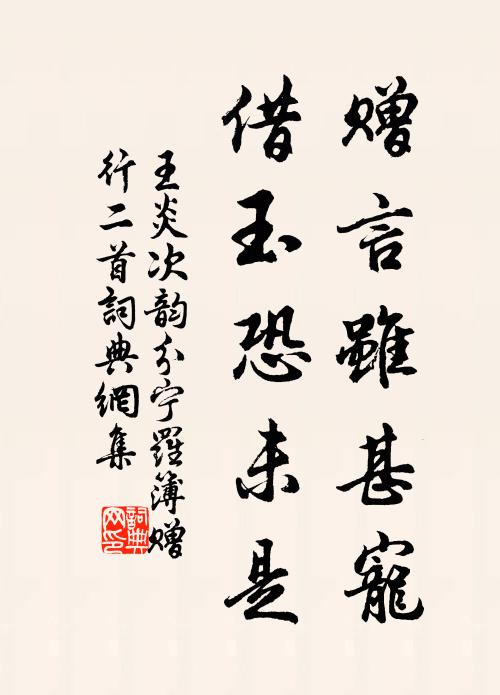 赠言雖甚寵
借玉恐未是
王炎次韵分宁羅簿赠
行二首詞典網集
詞典网印